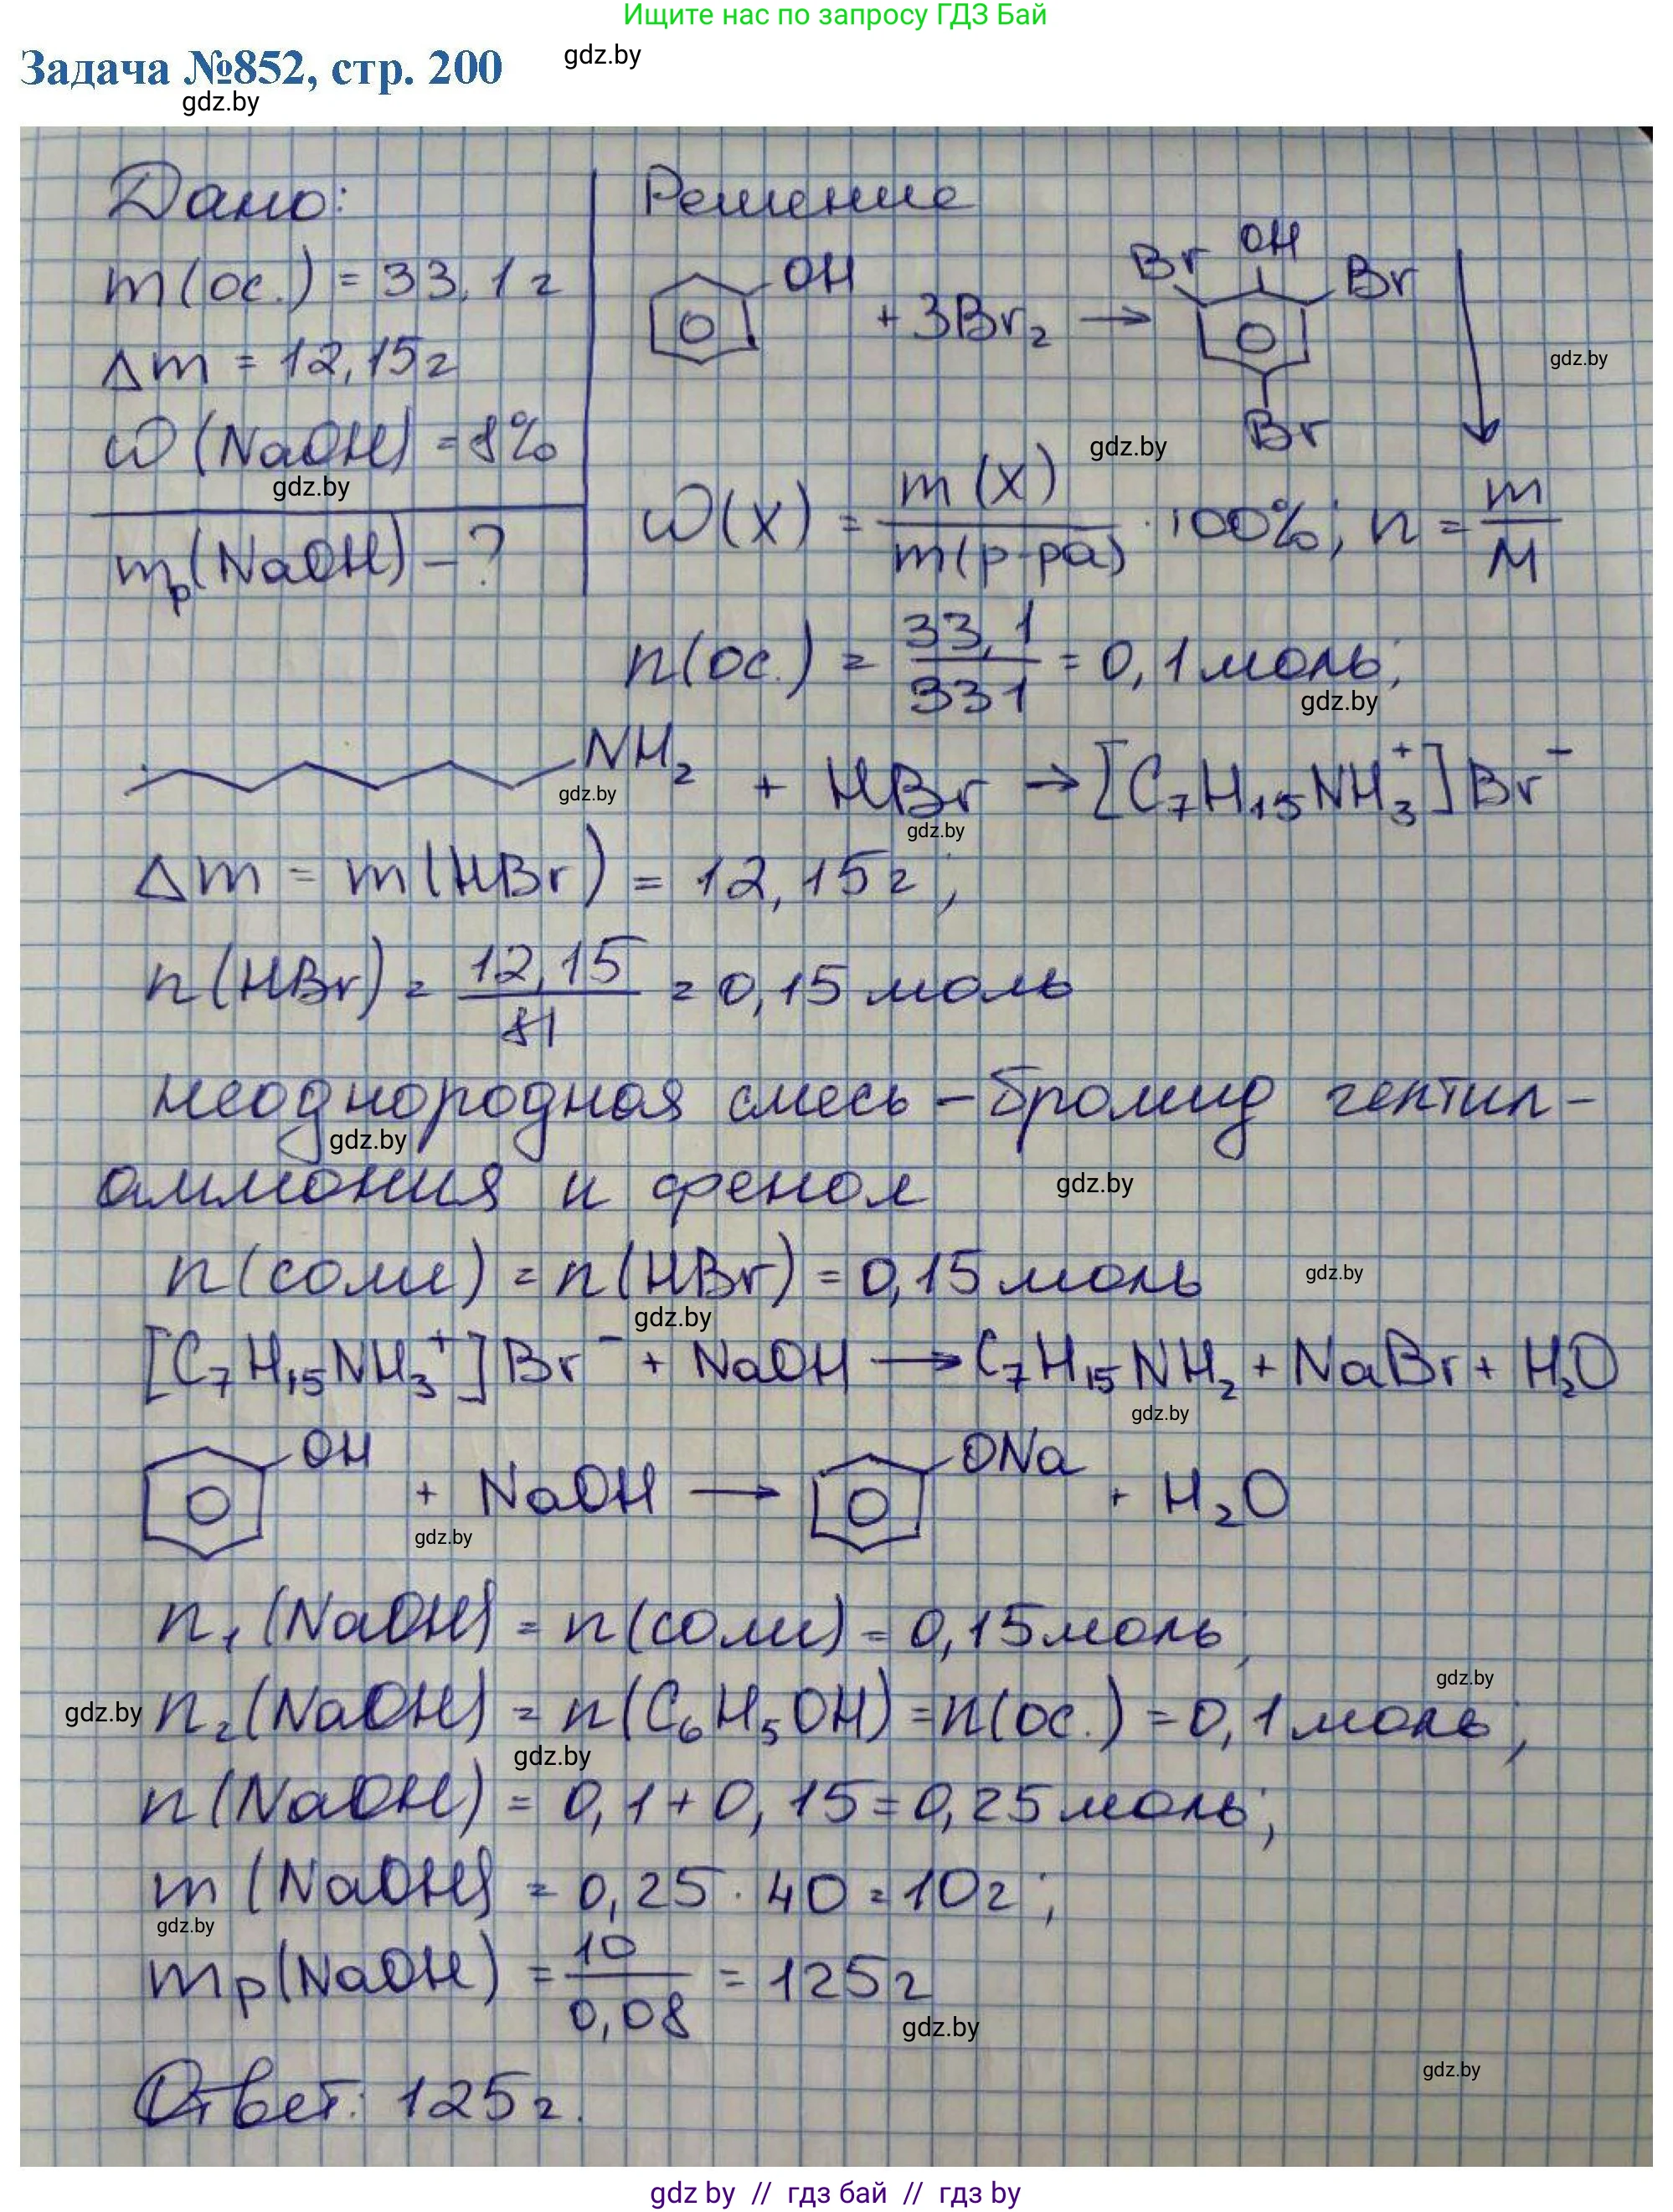 Ищите нас по запросу ГДЗ Бай
Задача №852, стр. 200
gdz.by
gdz.by
Дано:
m(ос.) = 33,1 г
Δm = 12,15 г
ω(NaOH) = 8%
gdz.by
mр(NaOH) – ?
Решение
OH + 3Br₂ → Br OH Br Br ↓
gdz.by
gdz.by
ω(X) = m(X) / m(р-ра) · 100%; n = m / M
n(ос.) = 33,1 / 331 = 0,1 моль;
gdz.by
NH₂ + HBr → [C₇H₁₅NH₃⁺]Br⁻
gdz.by
gdz.by
Δm = m(HBr) = 12,15 г;
n(HBr) = 12,15 / 81 = 0,15 моль
неоднородная смесь – бромид гептил-
gdz.by
аммония и фенол
gdz.by
n(соли) = n(HBr) = 0,15 моль
gdz.by
gdz.by
[C₇H₁₅NH₃⁺]Br⁻ + NaOH → C₇H₁₅NH₂ + NaBr + H₂O
gdz.by
OH + NaOH → ONa + H₂O
gdz.by
n₁(NaOH) = n(соли) = 0,15 моль;
gdz.by
gdz.by
n₂(NaOH) = n(C₆H₅OH) = n(ос.) = 0,1 моль;
gdz.by
n(NaOH) = 0,1 + 0,15 = 0,25 моль;
m(NaOH) = 0,25 · 40 = 10 г;
gdz.by
mр(NaOH) = 10 / 0,08 = 125 г
gdz.by
gdz.by
Ответ: 125 г.
gdz by // гдз бай // гдз by